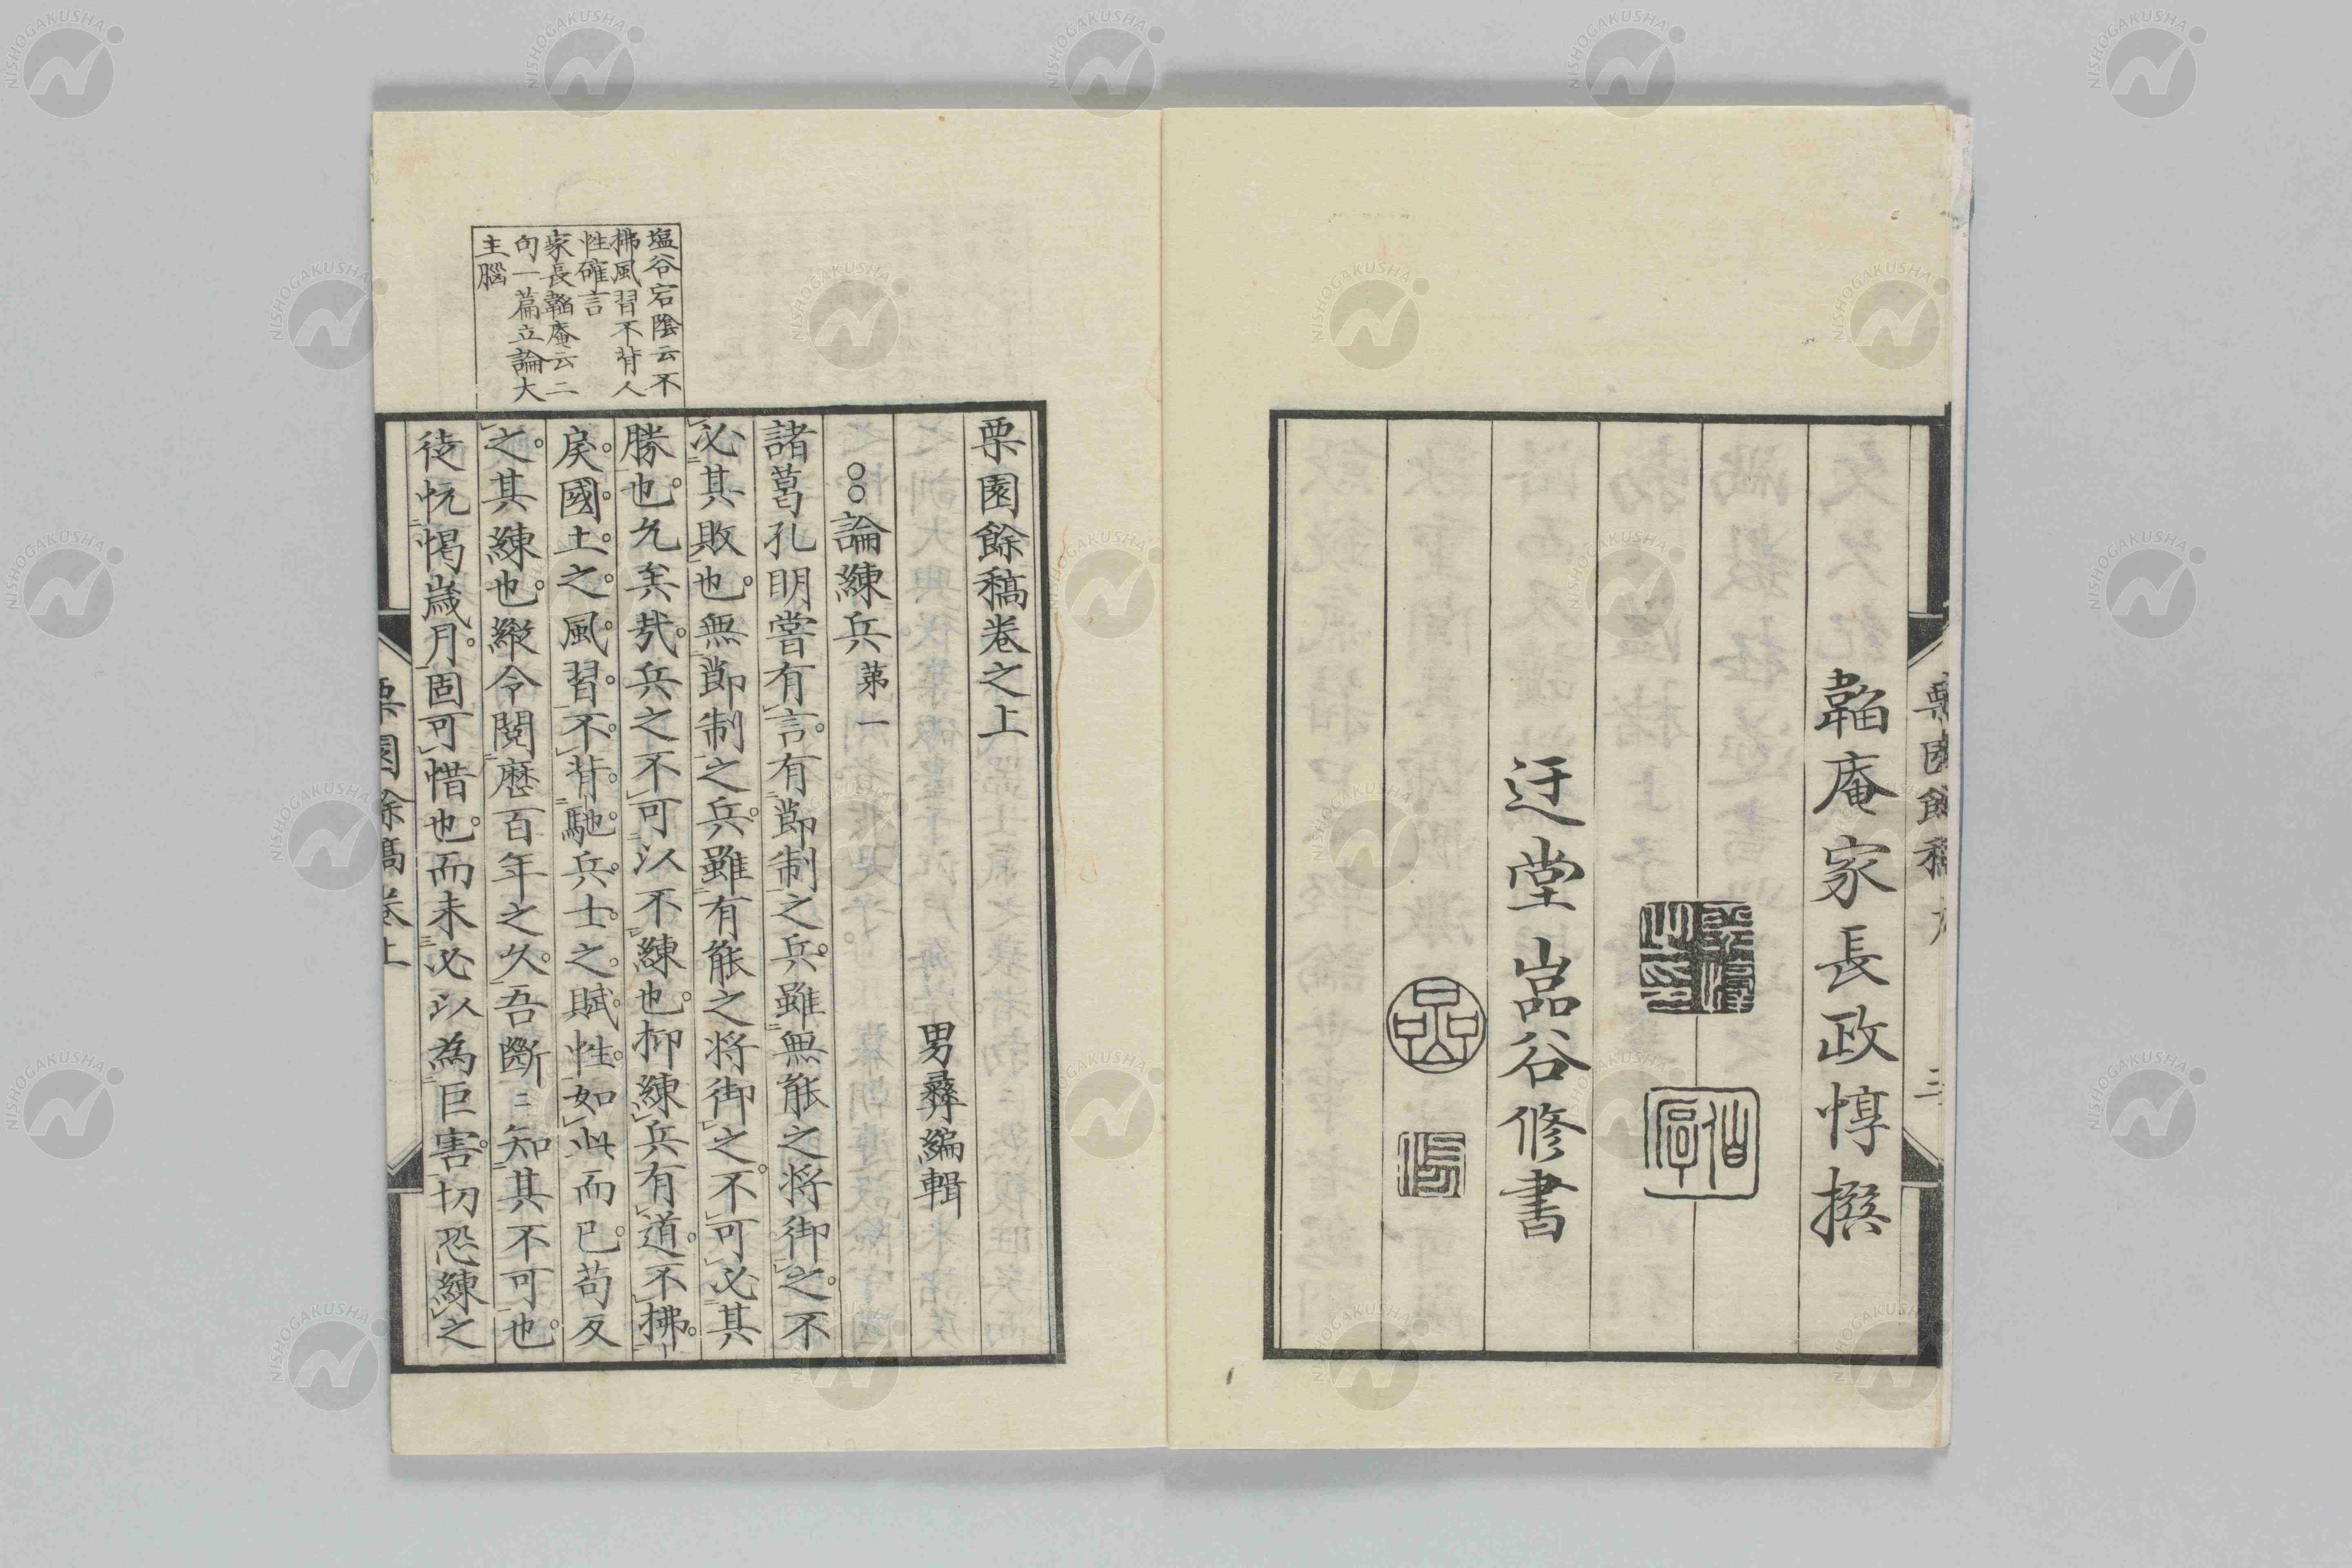 韜庵家長政惇撰
迂堂嵓谷修書
栗園餘稿卷之上
男彛編輯
○○論練兵第一
諸葛孔明嘗有言。有節制之兵。雖無能之將御之。不
必其敗也。無節制之兵。雖有能之將御之。不可必其
勝也。久矣哉。兵之不可以不練也。抑練兵有道。不拂。
戾。國。土。之。風。習。不。背。馳。兵。士。之。賦。性。如此而已。苟反
之。其練也。縱令閱歷百年之久。吾斷〻知其不可也。
徒忨愒歲月。固可惜也。而未必以為巨害。切恐練之
塩谷宕陰云不
拂風習不背人
性確言
家長韜庵云二
句一篇立論大
主腦
栗園餘稿卷上
栗園餘稿
三
NISHOGAKUSHA